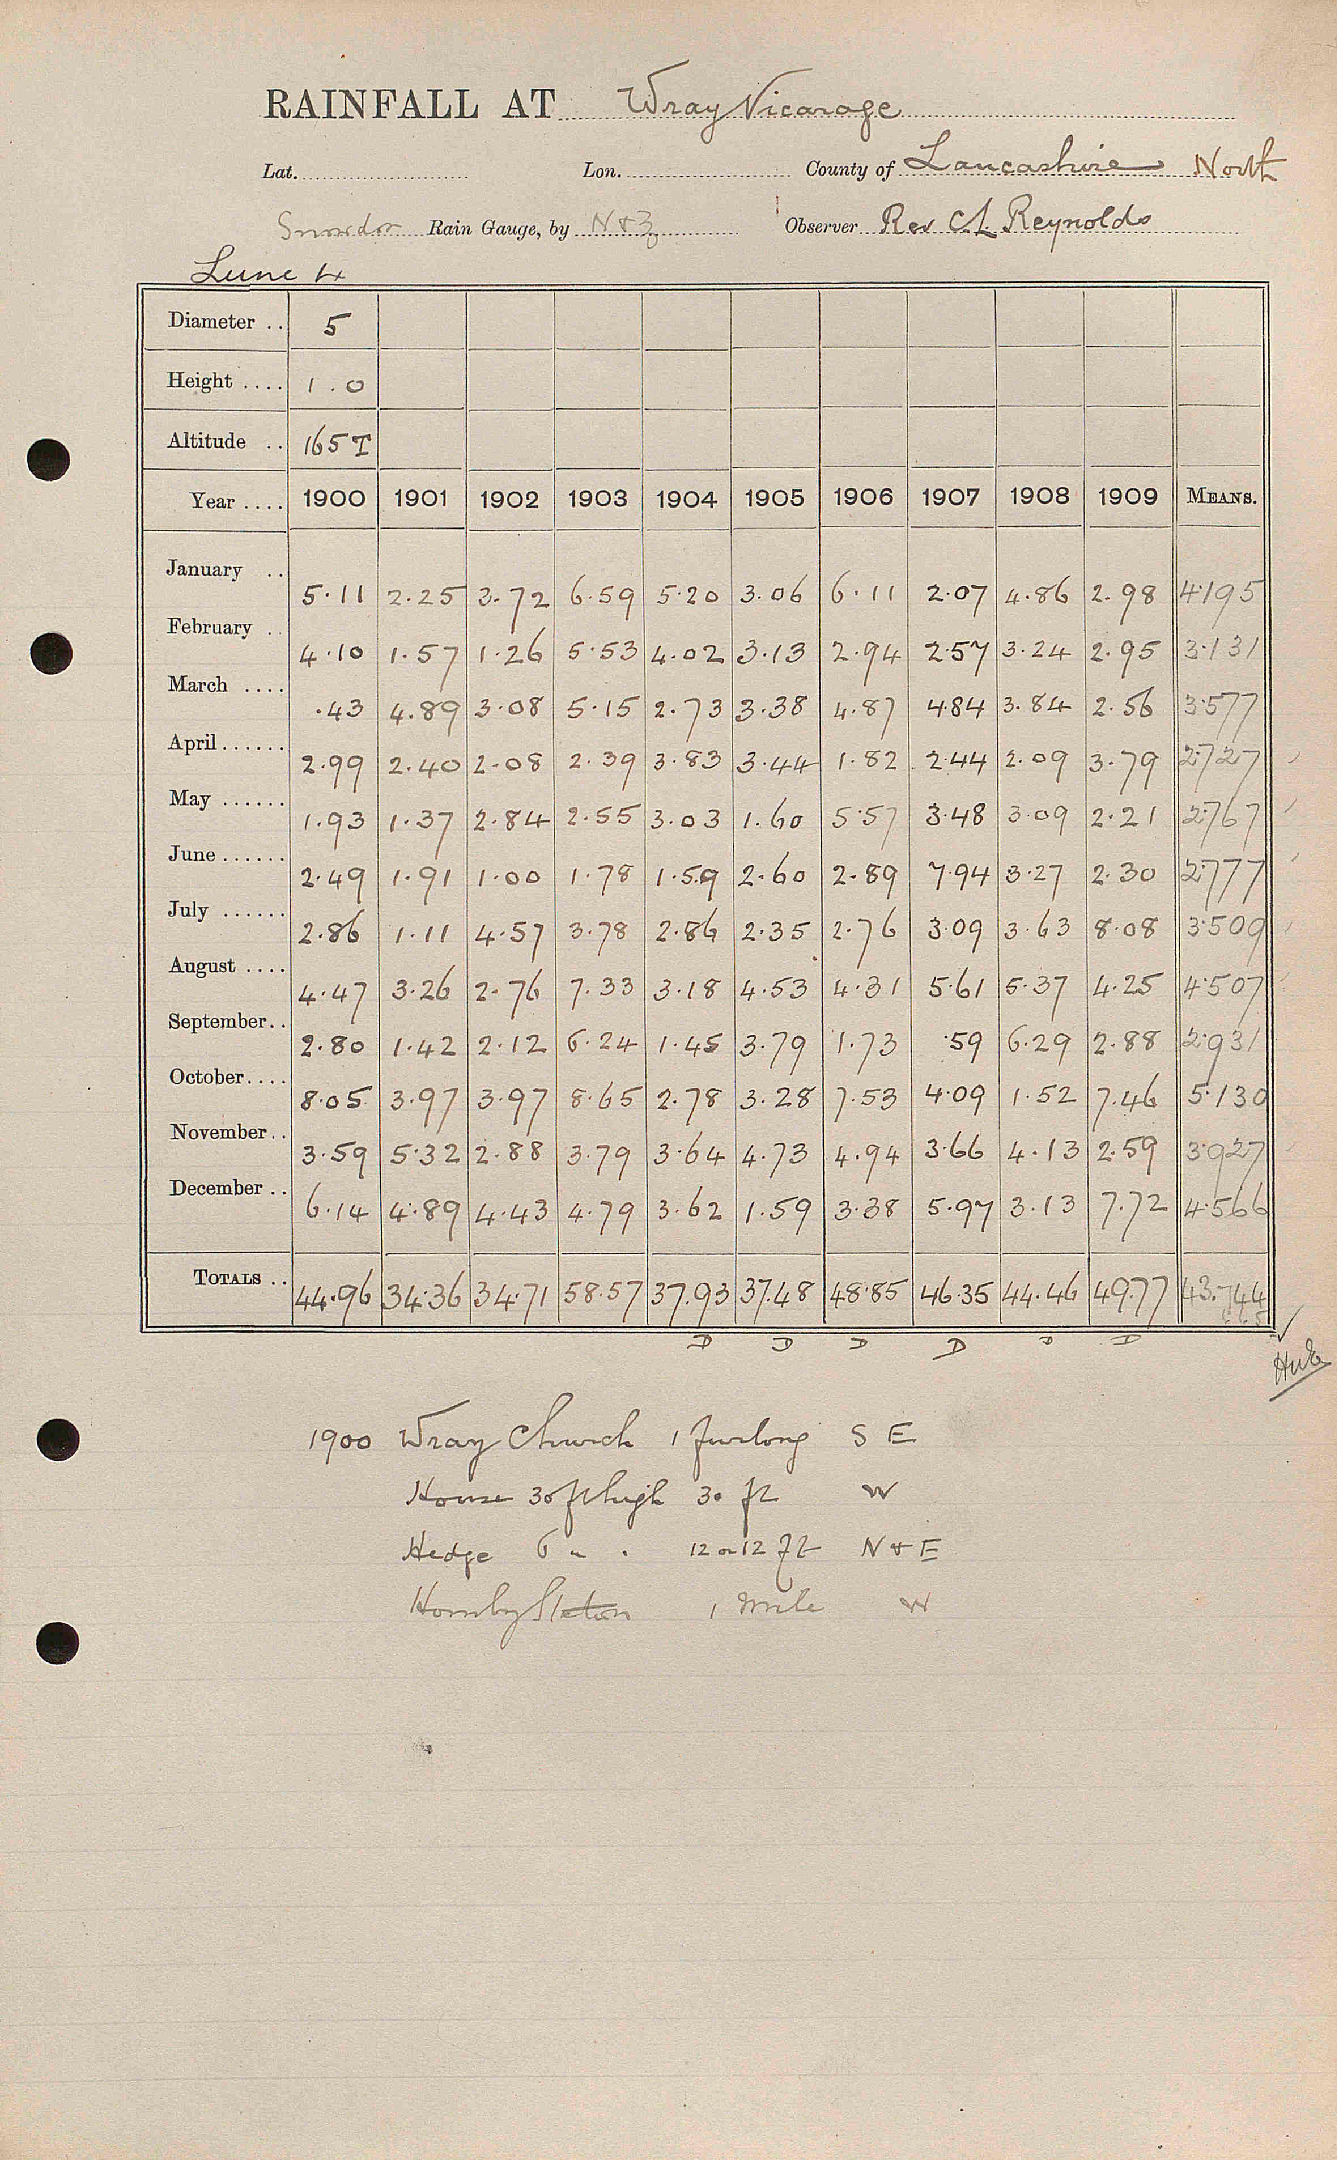 RAINFALL AT Wray Vicarage
Lat. Lon. County of Lancashire North
Snowdon Rain Gauge, by N & Z Observer Rev C.L. Reynolds
Lune 4
Diameter .. 5
Height .... 1.0
Altitude .. 165 T
Year .... 1900 1901 1902 1903 1904 1905 1906 1907 1908 1909 MEANS.
January .. 5.11 2.25 3.72 6.59 5.20 3.06 6.11 2.07 4.86 2.98 4.195
February .. 4.10 1.57 1.26 5.53 4.02 3.13 2.94 2.57 3.24 2.95 3.131
March .... .43 4.89 3.08 5.15 2.73 3.38 4.87 4.84 3.84 2.56 3.577
April ...... 2.99 2.40 2.08 2.39 3.83 3.44 1.82 2.44 2.09 3.79 2.727
May ...... 1.93 1.37 2.84 2.55 3.03 1.60 5.57 3.48 3.09 2.21 2.767
June ...... 2.49 1.91 1.00 1.78 1.59 2.60 2.89 7.94 3.27 2.30 2.777
July ...... 2.86 1.11 4.57 3.78 2.86 2.35 2.76 3.09 3.63 8.08 3.509
August .... 4.47 3.26 2.76 7.33 3.18 4.53 4.31 5.61 5.37 4.25 4.507
September .. 2.80 1.42 2.12 6.24 1.45 3.79 1.73 .59 6.29 2.88 2.931
October .... 8.05 3.97 3.97 8.65 2.78 3.28 7.53 4.09 1.52 7.46 5.130
November .. 3.59 5.32 2.88 3.79 3.64 4.73 4.94 3.66 4.13 2.59 3.927
December .. 6.14 4.89 4.43 4.79 3.62 1.59 3.38 5.97 3.13 7.72 4.566
TOTALS .. 44.96 34.36 34.71 58.57 37.93 37.48 48.85 46.35 44.46 49.77 43.744
D D D D D D
1900 Wray Church 1 furlong S E
House 30 ft high 30 ft W
Hedge 6 " . 12 or 12 ft N & E
Hornby Station 1 mile W